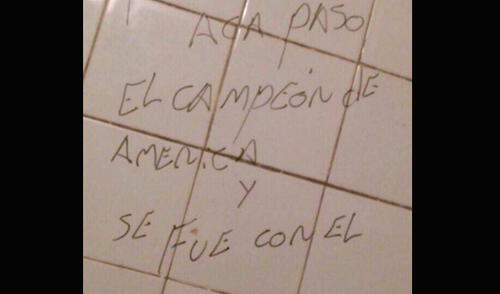 ACA PASO
EL CAMPEÓN dE
AMERICA
Y
SE FUE CON EL